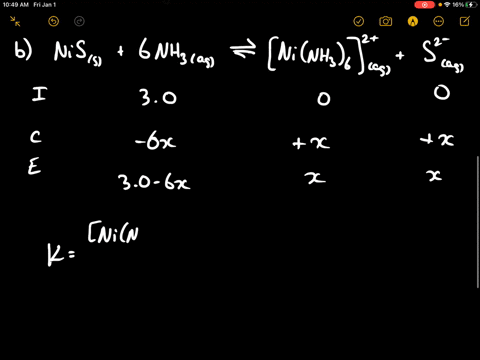 10:49 AM Fri Jan 1 16%
b) NiS(s) + 6NH3(aq) ⇌ [Ni(NH3)6]2+(aq) + S2-(aq)
I 3.0 0 0
C -6x +x +x
E 3.0-6x x x
K= [Ni(N